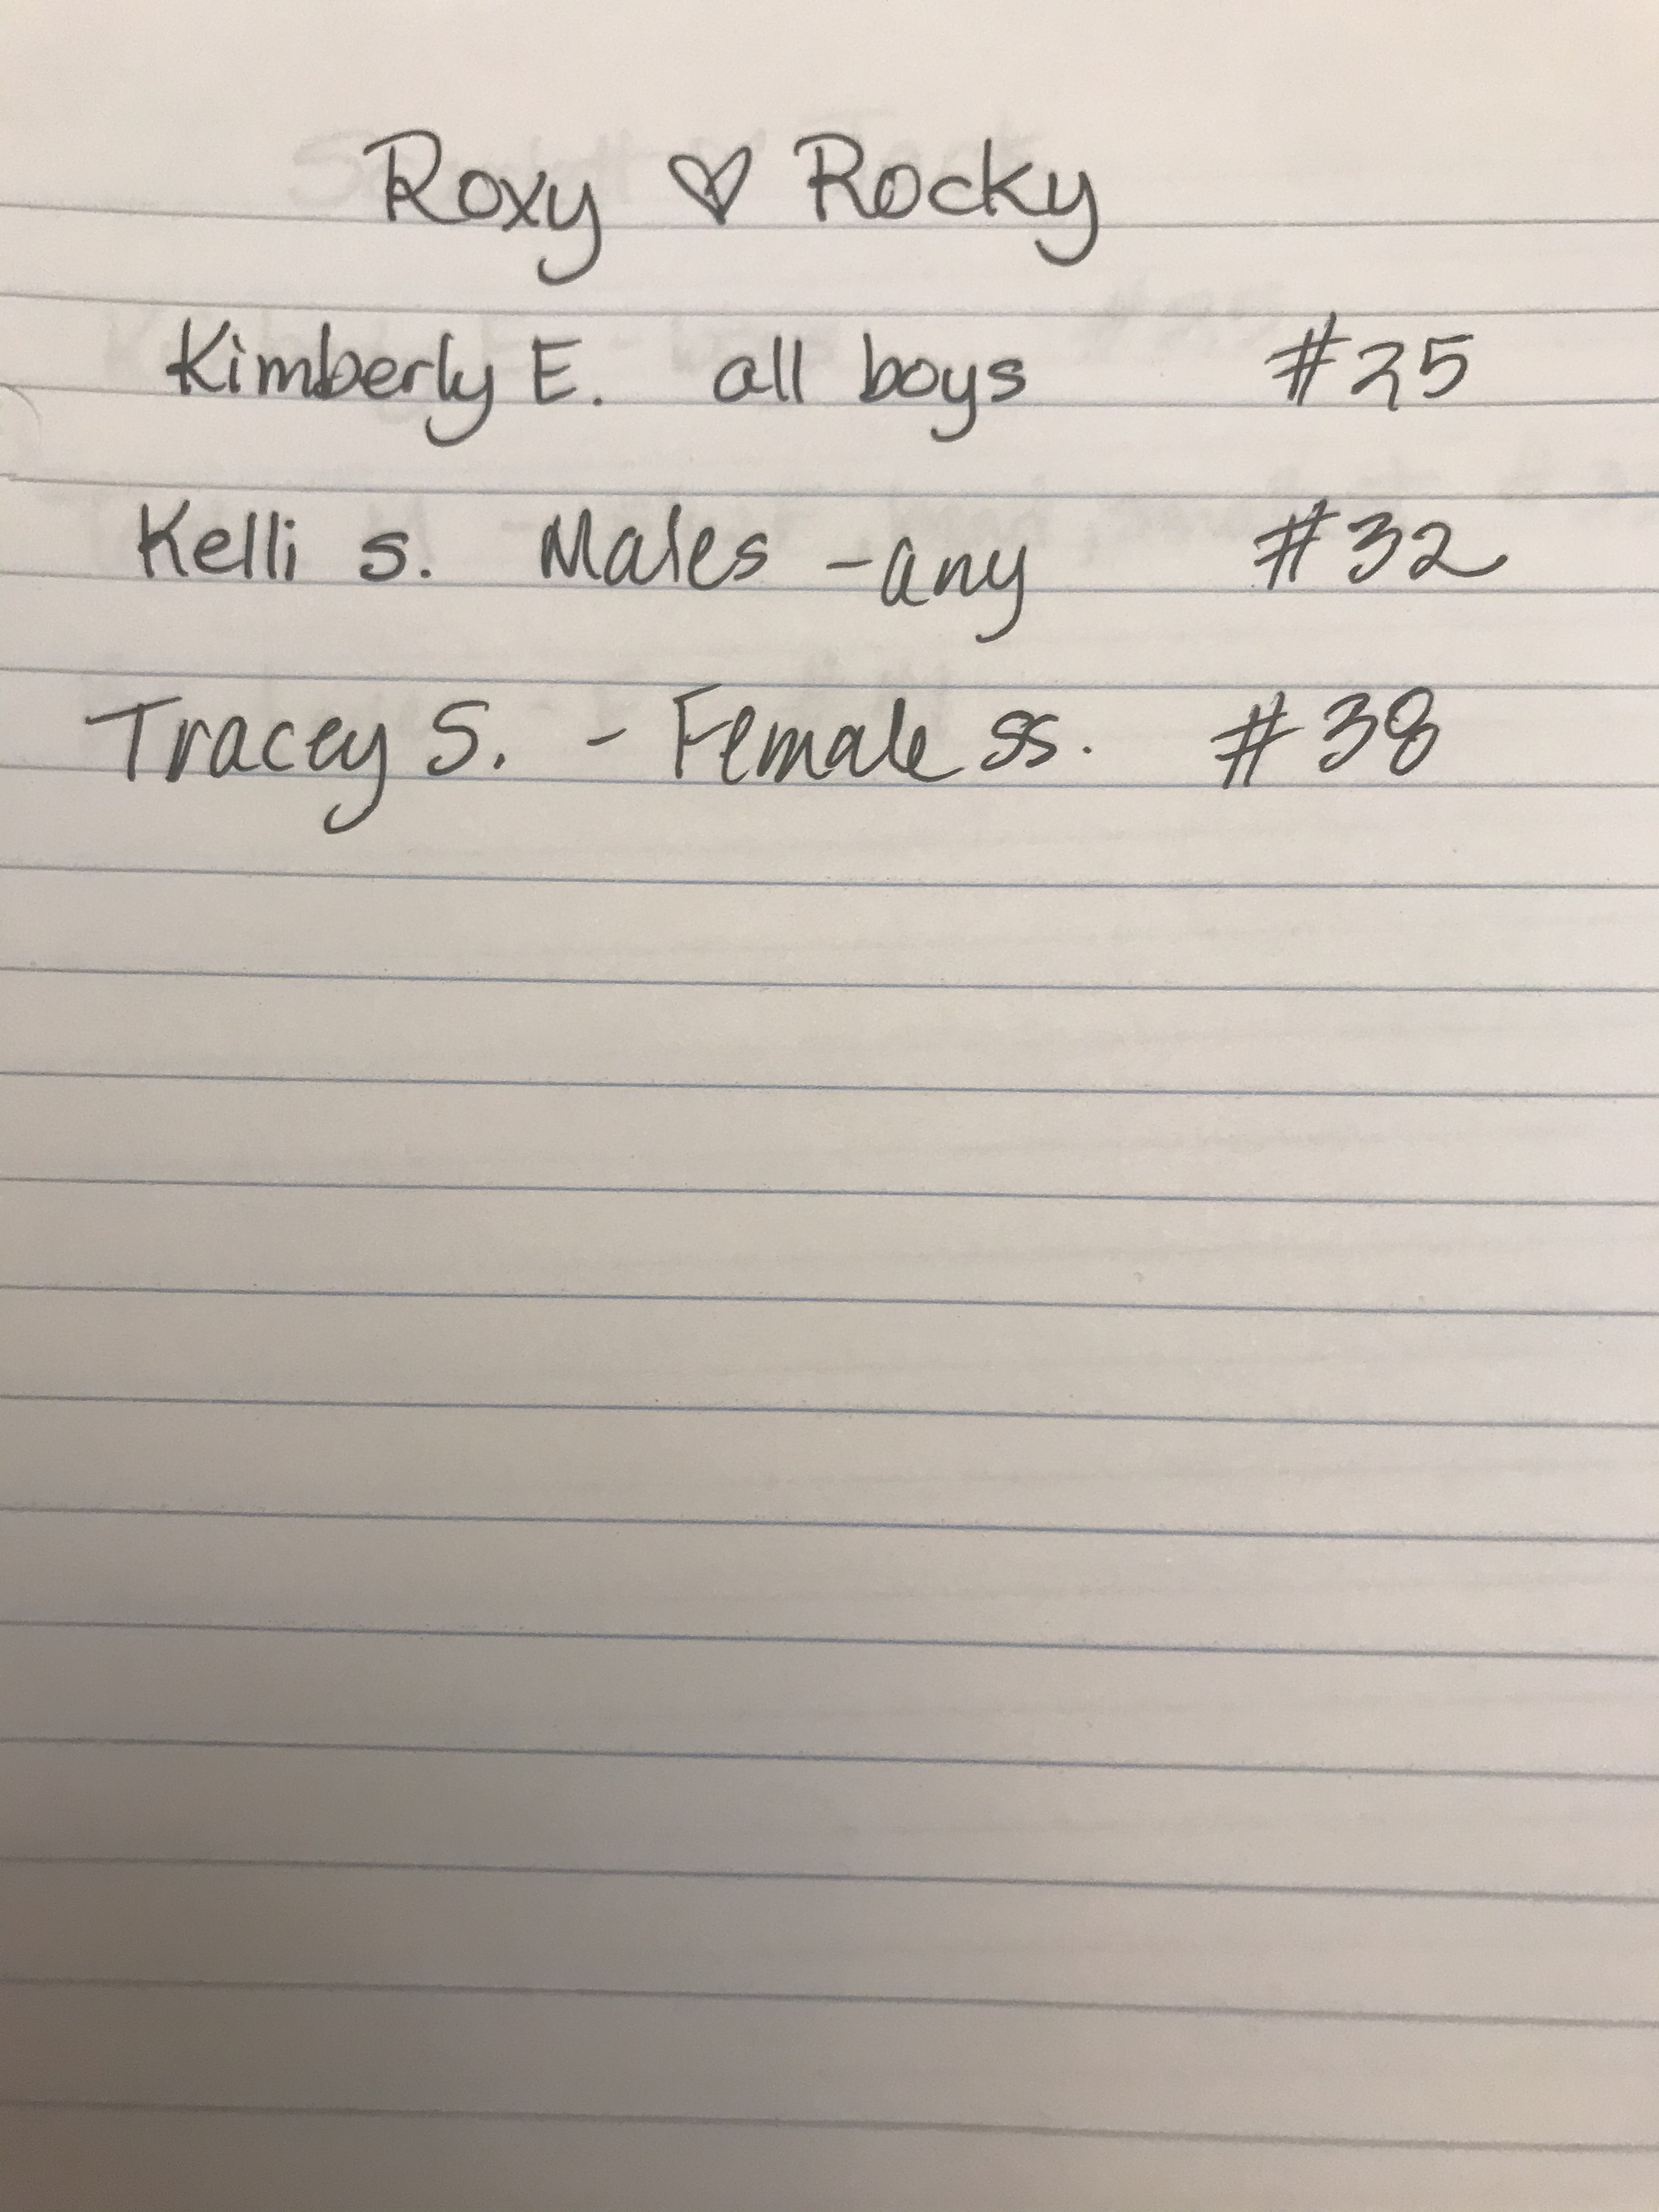 Roxy ♡ Rocky
Kimberly E. all boys #25
Kelli s. Males - any #32
Tracey S. - Female ss. #38